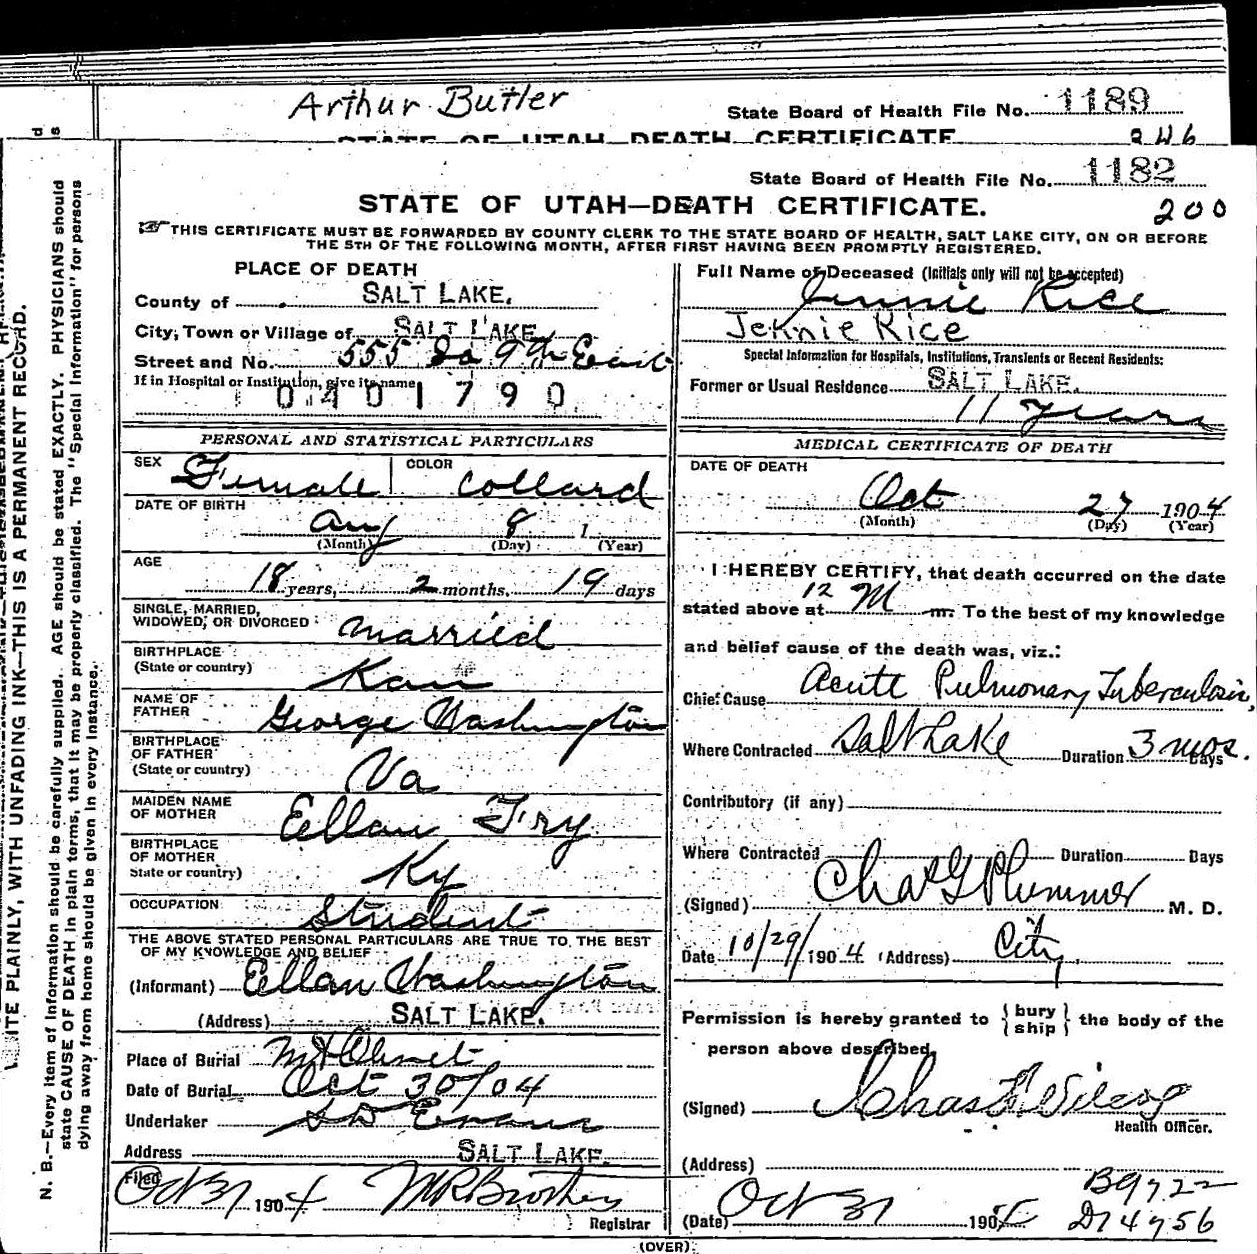 Arthur Butler
State Board of Health File No. 1189
STATE OF UTAH DEATH CERTIFICATE
246
State Board of Health File No. 1182
STATE OF UTAH—DEATH CERTIFICATE.
200
☞ THIS CERTIFICATE MUST BE FORWARDED BY COUNTY CLERK TO THE STATE BOARD OF HEALTH, SALT LAKE CITY, ON OR BEFORE
THE 5TH OF THE FOLLOWING MONTH, AFTER FIRST HAVING BEEN PROMPTLY REGISTERED.
PLACE OF DEATH
County of SALT LAKE.
City, Town or Village of SALT LAKE
Street and No. 555 So 9th East
If in Hospital or Institution, give its name
0401790
PERSONAL AND STATISTICAL PARTICULARS
SEX Female COLOR Collard
DATE OF BIRTH
Aug 8 1
(Month) (Day) (Year)
AGE
18 years, 2 months, 19 days
SINGLE, MARRIED,
WIDOWED, OR DIVORCED married
BIRTHPLACE
(State or country) Kan
NAME OF
FATHER George Washington
BIRTHPLACE
OF FATHER
(State or country) Va
MAIDEN NAME
OF MOTHER Ellan Fry
BIRTHPLACE
OF MOTHER
State or country) Ky
OCCUPATION Student
THE ABOVE STATED PERSONAL PARTICULARS ARE TRUE TO THE BEST
OF MY KNOWLEDGE AND BELIEF
(Informant) Ellan Washington
(Address) SALT LAKE.
Place of Burial Mt Olivet
Date of Burial Oct 30/04
Undertaker S D Evans
Address SALT LAKE.
Filed Oct 31 1904
Registrar
Full Name of Deceased (Initials only will not be accepted)
Jennie Rice
Jennie Rice
Special Information for Hospitals, Institutions, Transients or Recent Residents:
Former or Usual Residence SALT LAKE.
11 years
MEDICAL CERTIFICATE OF DEATH
DATE OF DEATH
Oct 27 1904
(Month) (Day) (Year)
I HEREBY CERTIFY, that death occurred on the date
stated above at 12 M m. To the best of my knowledge
and belief cause of the death was, viz.:
Chief Cause Acute Pulmonary Tuberculosis,
Where Contracted Salt Lake Duration 3 mos. Days
Contributory (if any)
Where Contracted Duration Days
(Signed) Chas G Plummer M. D.
Date 10/29/1904 (Address) City
Permission is hereby granted to { bury ship } the body of the
person above described.
(Signed)
Health Officer.
(Address)
(Date) Oct 31 1904
B9722
D14756
(OVER)
WRITE PLAINLY, WITH UNFADING INK—THIS IS A PERMANENT RECORD.
N. B.—Every item of information should be carefully supplied. AGE should be stated EXACTLY. PHYSICIANS should
state CAUSE OF DEATH in plain terms, that it may be properly classified. The "Special Information" for persons
dying away from home should be given in every instance.